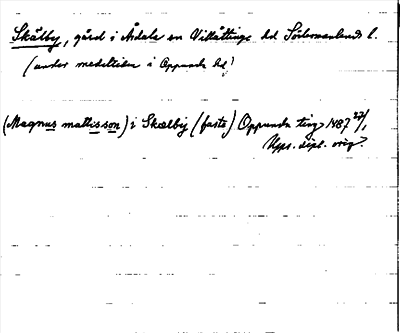 Skälby, gård i Årdala sn Villåttinge hd Södermanlands l.
(under medeltiden i Oppunda hd)
(Magnus mattisson) i Skælby (faste) Oppunda ting 1487 27/1,
Upps. dipl. orig.